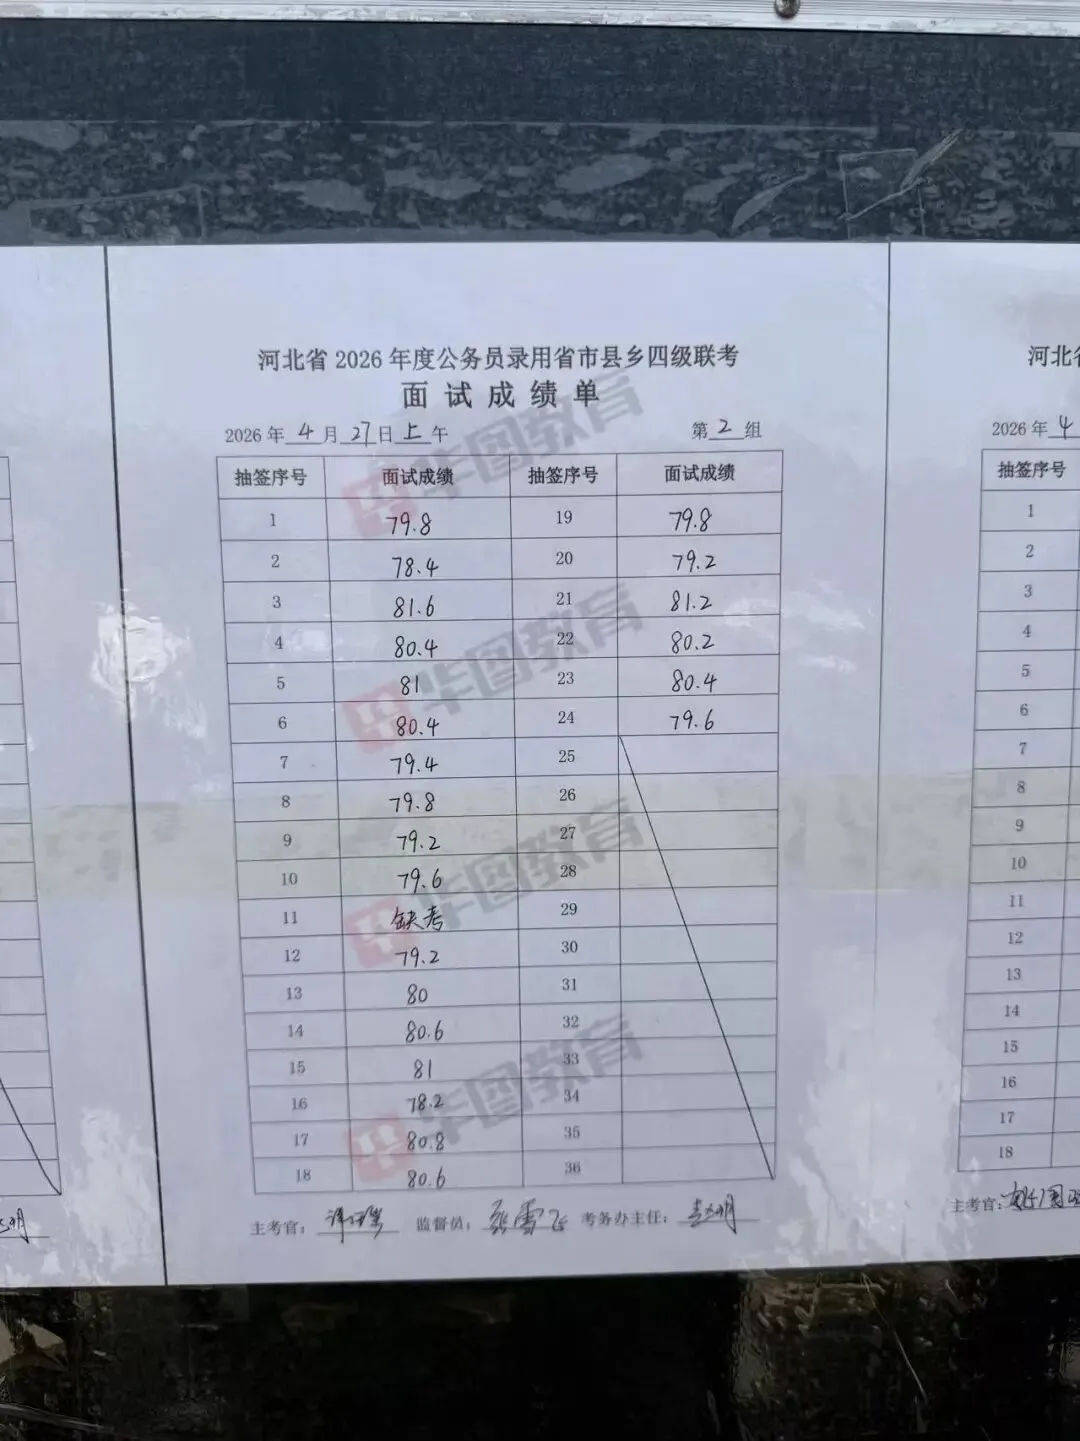 河北省 2026 年度公务员录用省市县乡四级联考
面试成绩单
2026 年 4 月 27 日 上 午 第 2 组
抽签序号 面试成绩 抽签序号 面试成绩
1 79.8 19 79.8
2 78.4 20 79.2
3 81.6 21 81.2
4 80.4 22 80.2
5 81 23 80.4
6 80.4 24 79.6
7 79.4 25
8 79.8 26
9 79.2 27
10 79.6 28
11 缺考 29
12 79.2 30
13 80 31
14 80.6 32
15 81 33
16 78.2 34
17 80.8 35
18 80.6 36
主考官： 监督员：张雪飞 考务办主任：
华图教育
华图教育
华图教育
华图教育
河北省
2026 年 4
抽签序号
1
2
3
4
5
6
7
8
9
10
11
12
13
14
15
16
17
18
主考官：